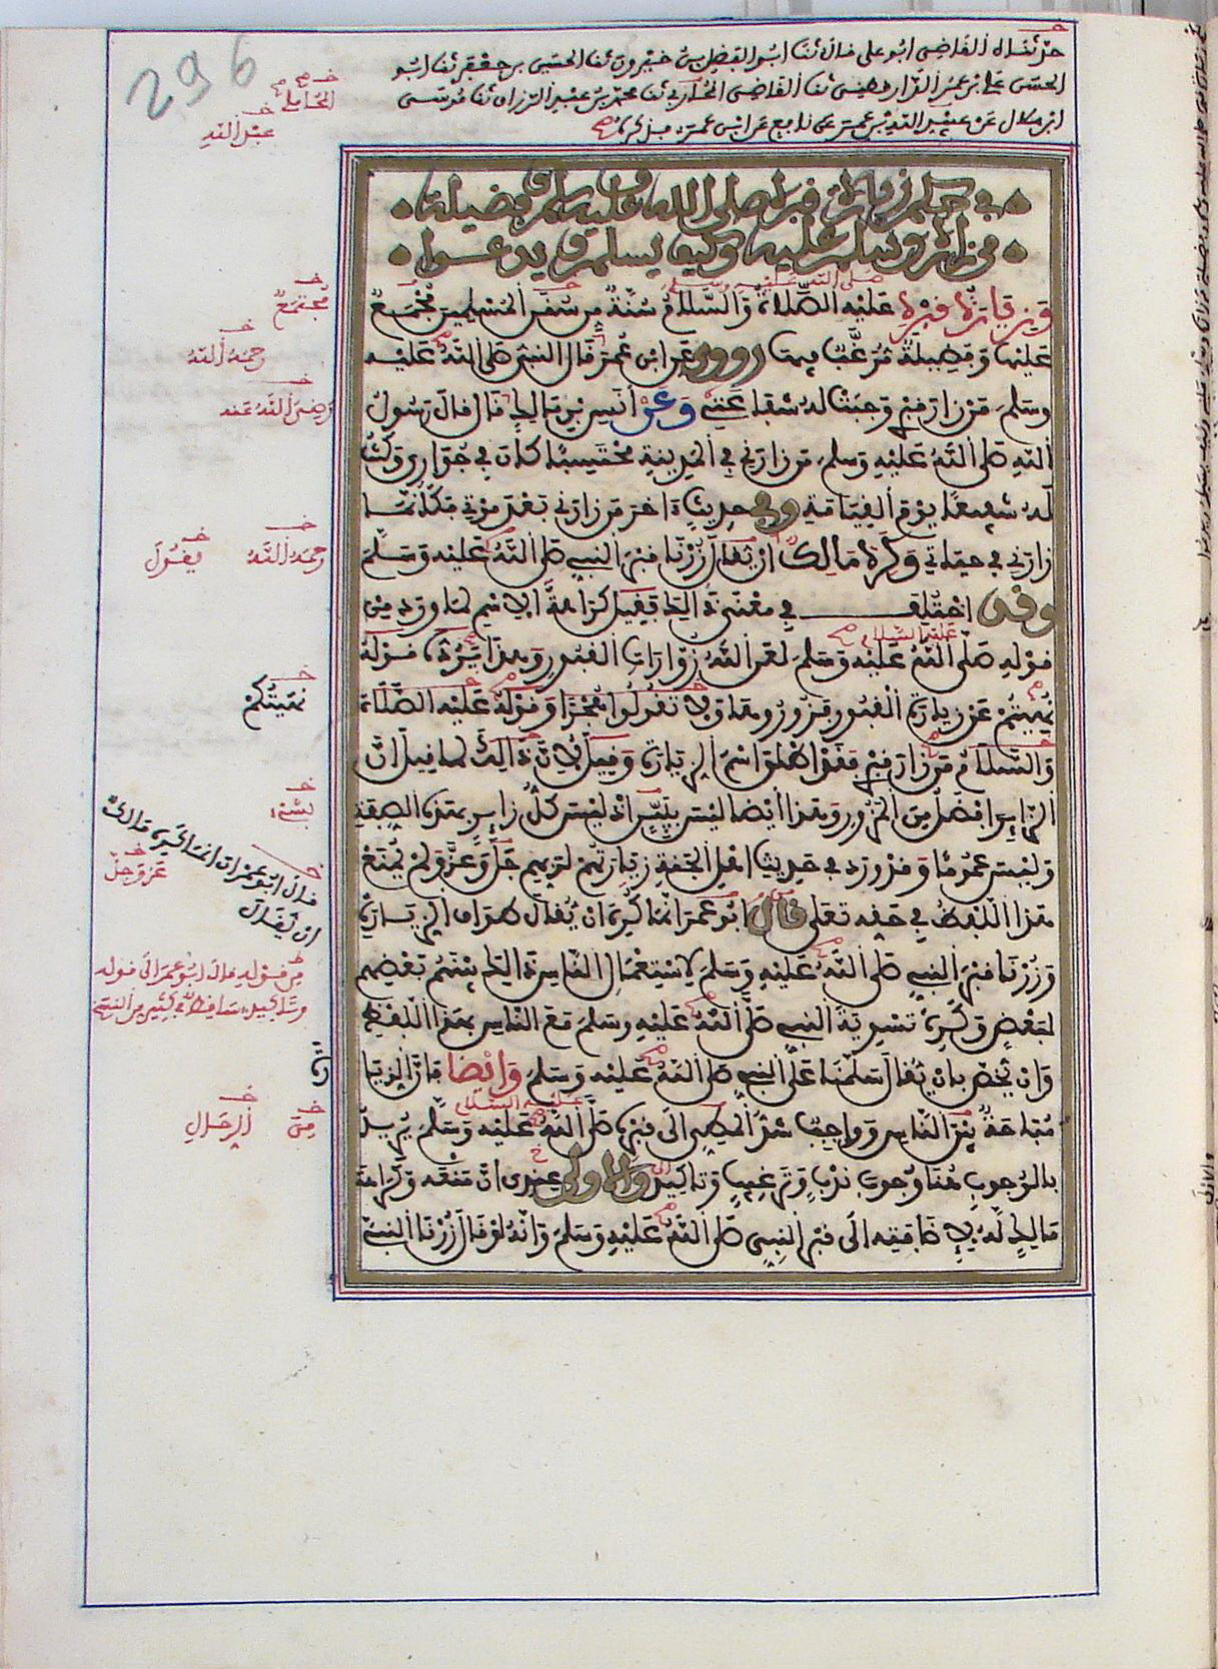 296
حدثناه القاضي ابو علي قال ثنا ابو الفضل بن خيرون ثنا الحسن بن جعفر ثنا ابو
الحسن علي بن عمر الدارقطني ثنا القاضي المحاربي ثنا محمد بن عبد الرزاق ثنا موسى
ابن هلال عن عبيد الله بن عمر عن نافع عن ابن عمر
المحاملي
عبد الله
في حكم زيارة قبره صلى الله عليه وسلم وفضيلة
من زاره وسلم عليه وكيف يسلم ويدعوا
صلى الله عليه وسلم
وزيارة قبره عليه الصلاة والسلام سنة من سنن المسلمين مجمع
عليها وفضيلة مرغب فيها روي عن ابن عمر قال النبي صلى الله عليه
وسلم من زار قبري وجبت له شفاعتي وعن انس بن مالك قال قال رسول
الله صلى الله عليه وسلم من زارني في المدينة محتسبا كان في جواري وكنت
له شفيعا يوم القيامة وفي حديث اخر من زارني بعد موتي فكأنما
زارني في حياتي وكره مالك ان يقال زرنا قبر النبي صلى الله عليه وسلم
وقد اختلف في معنى ذالك فقيل كراهة الاسم لما ورد من
عليه السلام
قوله صلى الله عليه وسلم لعن الله زوارات القبور وهذا يرده قوله
نهيتم عن زيارة القبور فزوروها ولا تقولوا هجرا وقوله عليه الصلاة
والسلام من زار قبري فقد اطلق اسم الزيارة وقيل لان ذالك لما قيل ان
الزاير افضل من المزور وهذا ايضا ليس بشيء اذ ليس كل زاير بهذه الصفة
وليس عموما وقد ورد في حديث اهل الجنة زيارتهم لربهم جل وعز ولم يمنع
هذا اللفظ في حقه تعلى قال ابو عمران انما كره ان يقال طواف الزيارة
وزرنا قبر النبي صلى الله عليه وسلم لاستعمال الناس ذالك بينهم بعضهم
لبعض وكره تسوية النبي صلى الله عليه وسلم مع الناس بهذا اللفظ
وان يخص بان يقال سلمنا على النبي صلى الله عليه وسلم وايضا فان الزيا
عليه السلام
مباحة بين الناس وواجب شد المطي الى قبره صلى الله عليه وسلم يريد
بالوجوب هنا وجوب ندب وترغيب وتاكيد والاولى عندي ان منعه وكراهة
مالك له لاضافته الى قبر النبي صلى الله عليه وسلم وانه لو قال زرنا النبي
مجتمع
رحمه الله
رضي الله عنه
رحمه الله يقول
نهيتكم
بشيء
قال ابو عمران انما كره مالك
ان يقال
عز وجل
من قوله قال ابو عمران الى قوله
وتاكيد ساقط في كثير من النسخ
رة
من الرحال